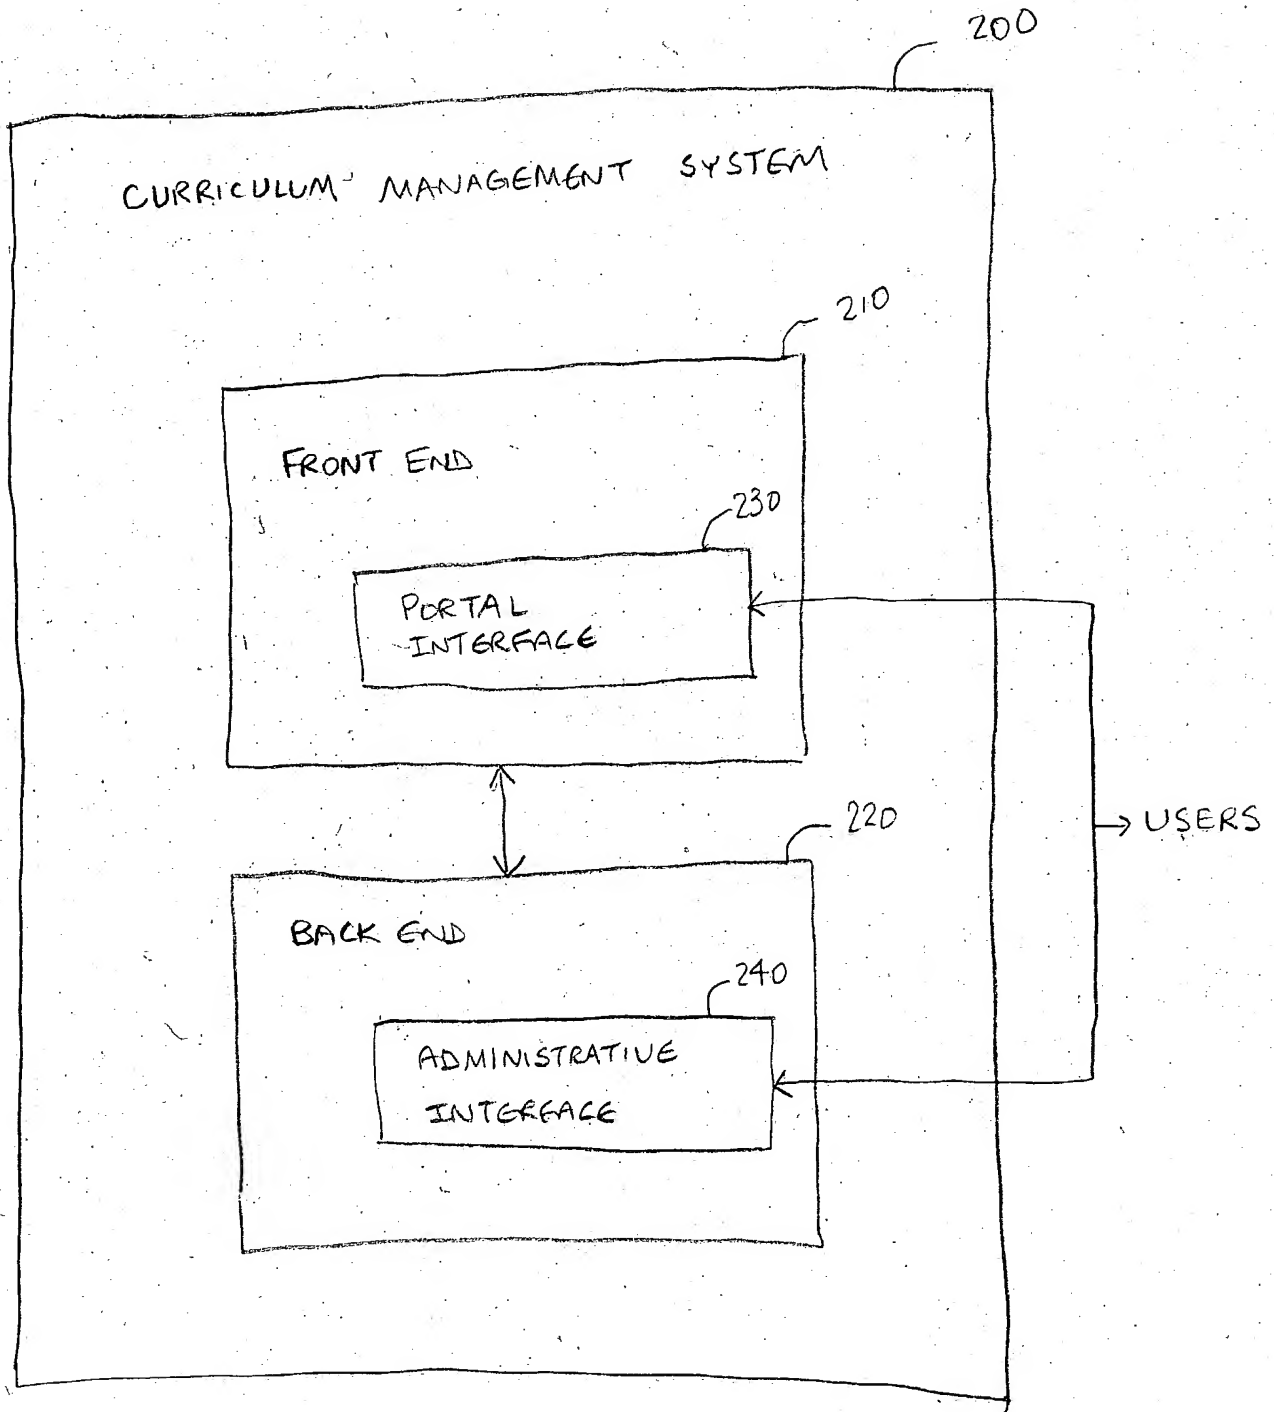 200
CURRICULUM MANAGEMENT SYSTEM
210
FRONT END
230
PORTAL
INTERFACE
220
USERS
BACK END
240
ADMINISTRATIVE
INTERFACE